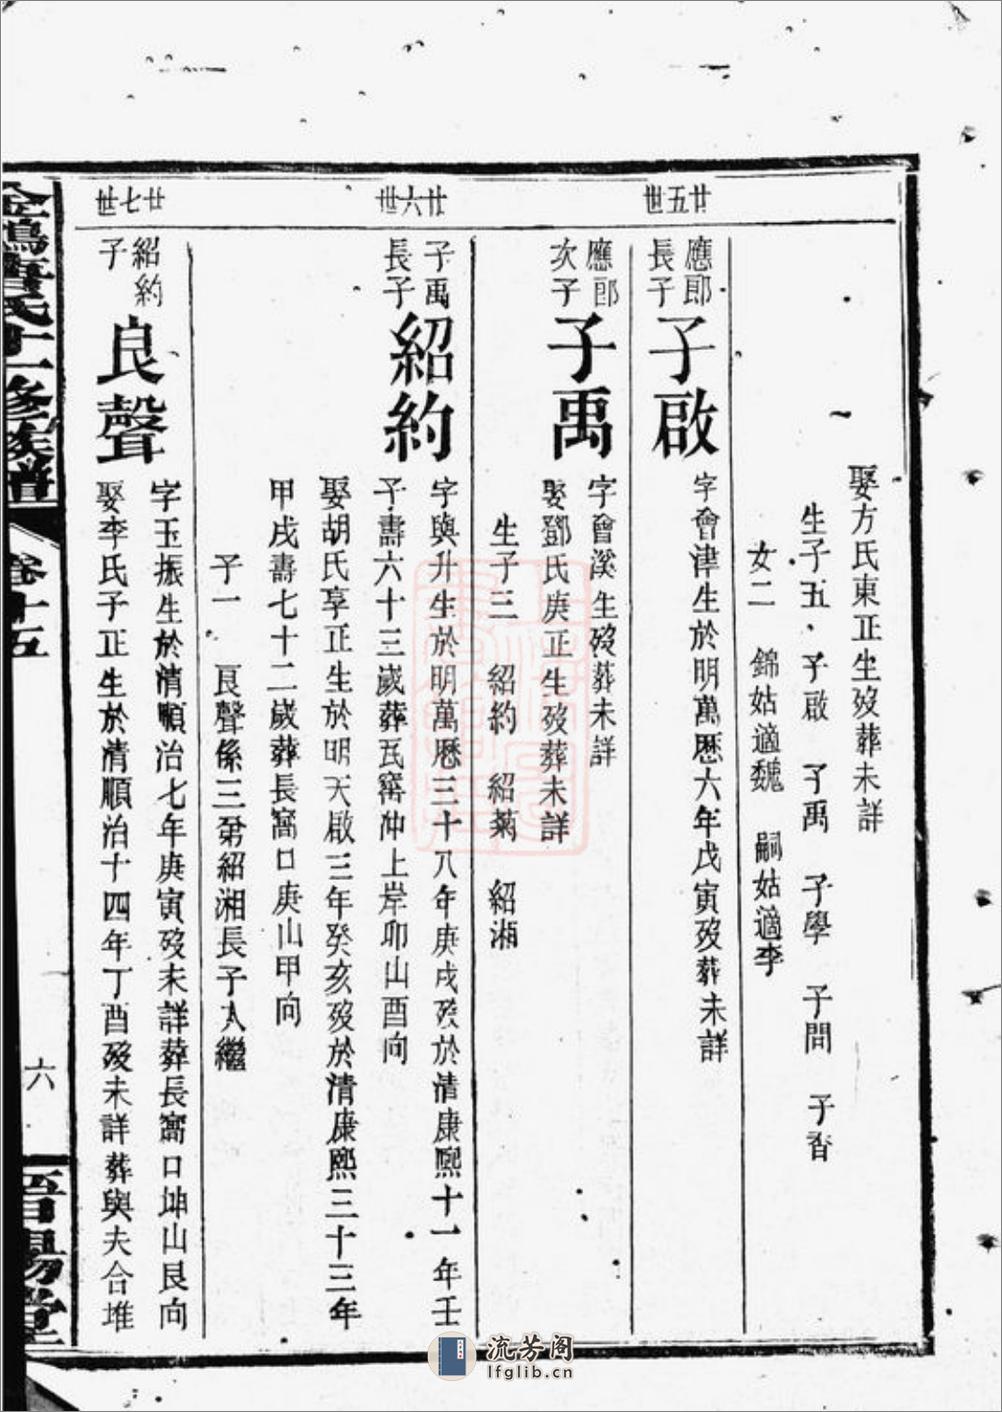 娶方氏東正生歿葬未詳
生子五 子啟 子禹 子學 子間 子㫺
女二 錦姑適魏 嗣姑適李
廿五世
應郎
長子
子啟
字會津生於明萬厯六年戊寅歿葬未詳
應郎
次子
子禹
字會溪生歿葬未詳
娶鄧氏庚正生歿葬未詳
生子三 紹約 紹菊 紹湘
廿六世
子禹
長子
紹約
字與升生於明萬厯三十八年庚戌歿於清康熙十一年壬
子壽六十三歲葬瓦窰冲上岸卯山酉向
娶胡氏享正生於明天啟三年癸亥歿於清康熙三十三年
甲戌壽七十二歲葬長窩口庚山甲向
子一 良聲係三弟紹湘長子入繼
廿七世
紹約
子
良聲
字玉振生於清順治七年庚寅歿未詳葬長窩口坤山艮向
娶李氏子正生於清順治十四年丁酉歿未詳葬與夫合堆
氏十一修族譜
卷十五
六
晉陽堂
流芳阁
lfglib.cn